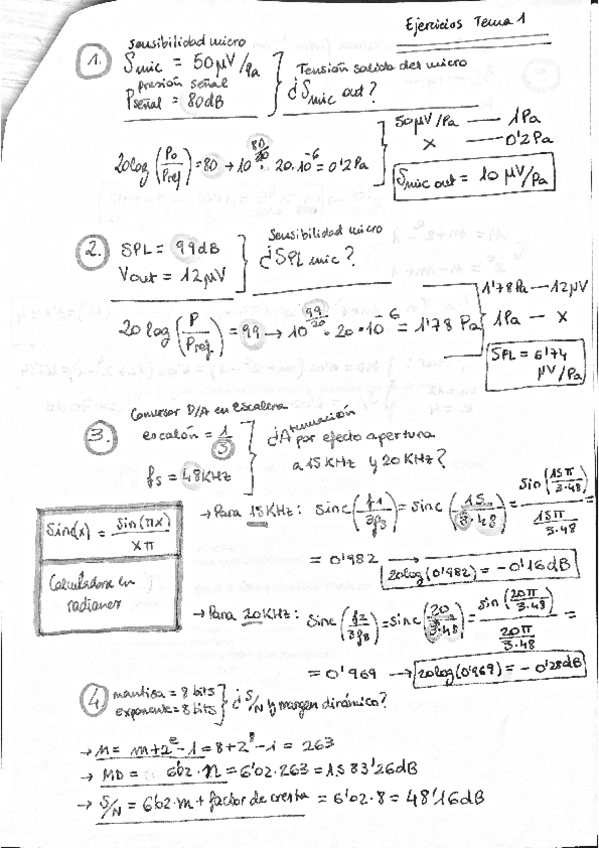 Ejercicios Tema 1
1. sensibilidad micro
Smic = 50µV/Pa
presión señal
Pseñal = 80dB
Tensión salida del micro
¿Smic out?
20log(Po/Pref) = 80 → 10^(80/20) · 20·10^-6 = 0'2Pa
50µV/Pa — 1Pa
x — 0'2Pa
Smic out = 10 µV/Pa
2. SPL = 99dB
Vout = 12µV
Sensibilidad micro
¿SPL mic?
20log(P/Pref) = 99 → 10^(99/20) · 20·10^-6 = 1'78 Pa
1'78Pa — 12µV
1Pa — x
SPL = 6'74 µV/Pa
3. Conversor D/A en escalera
escalón = 1/3
fs = 48KHz
¿Atenuación
por efecto apertura
a 15KHz y 20KHz?
Sinc(x) = Sin(πx)/xπ
Calculadora en
radianes
→ Para 15KHz: Sinc(f1/3fs) = sinc(15/3·48) = sin(15π/3·48) / (15π/3·48)
= 0'982 → 20log(0'982) = -0'16dB
→ Para 20KHz: sinc(f2/3fs) = sinc(20/3·48) = sin(20π/3·48) / (20π/3·48) =
= 0'969 → 20log(0'969) = -0'28dB
4 mantisa = 8 bits
exponente = 8 bits
¿S/N y margen dinámico?
→ n = m+2^e-1 = 8+2^8-1 = 263
→ MD = 6'02·n = 6'02·263 = 1583'26dB
→ S/N = 6'02·m + factor de cresta = 6'02·8 = 48'16dB